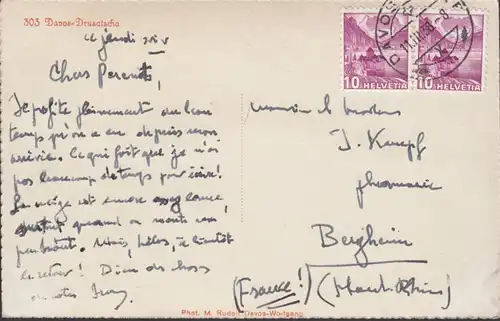 303 Davos-Drusatscha
ce jeudi
Chers Parents,
Je profite pleinement du beau
temps qu'on a eu depuis mon
arrivée. Ce qui fait que je n'ai
pas beaucoup de temps pour écrire!
La neige est encore assez bonne,
surtout quand on monte un
peu haut. Mais, hélas, à bientôt
le retour!
10 HELVETIA
10 HELVETIA
DAVOS
J. Kempf
pharmacie
Bergheim
(France!) (Haut-Rhin)
Phot. M. Rudolf Davos-Wolfgang